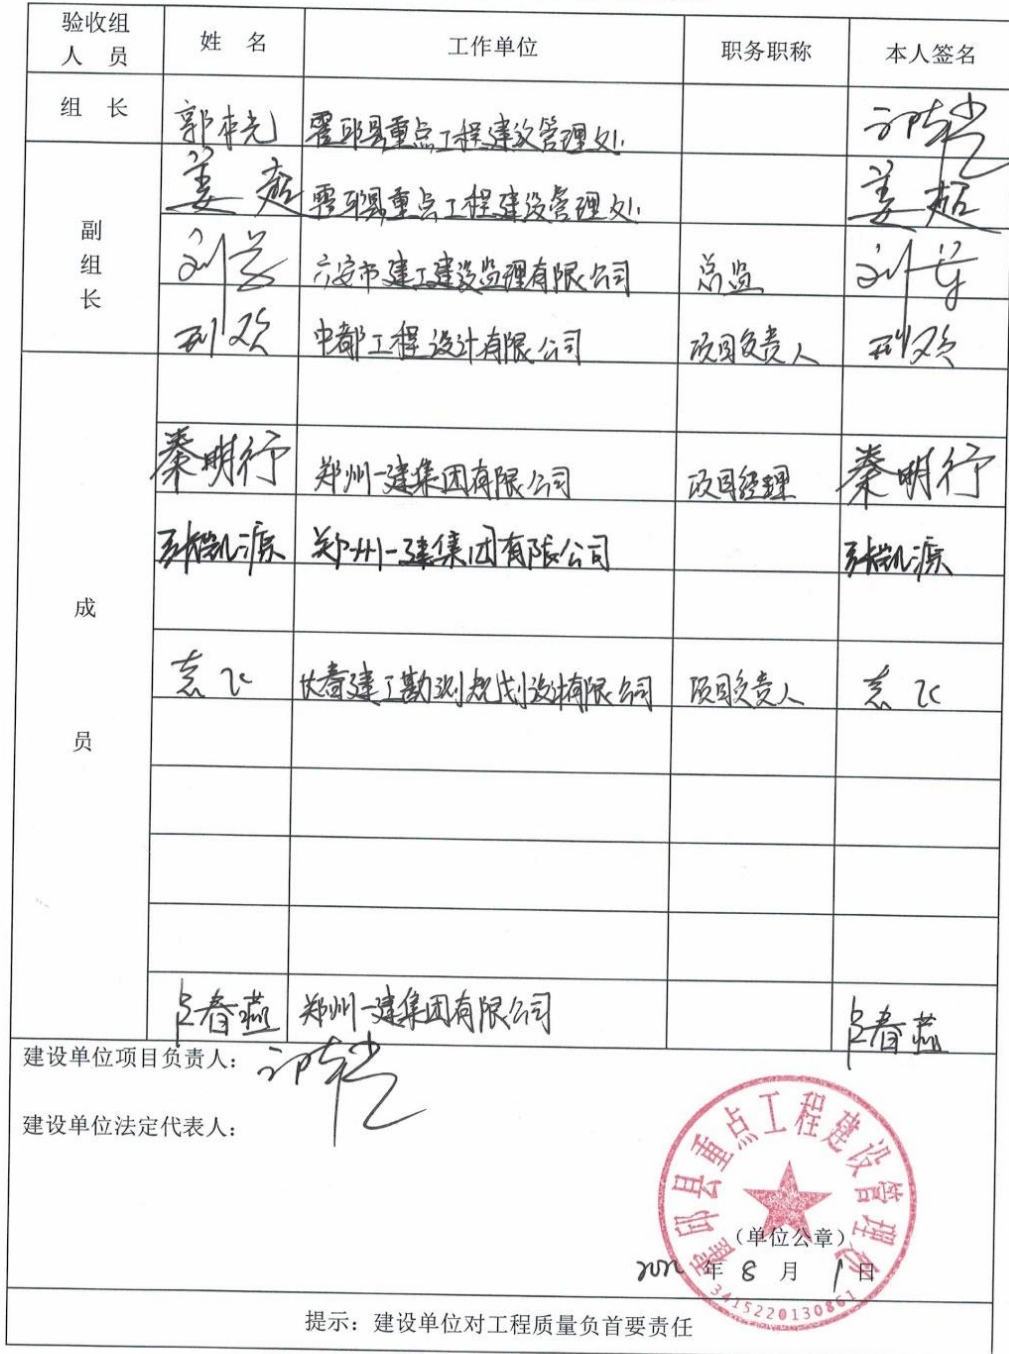 验收组人员 姓 名 工作单位 职务职称 本人签名
组 长 郭棹光 霍邱县重点工程建设管理处
副组长 姜超 霍邱县重点工程建设管理处 姜超
刘 六安市建工建设监理有限公司 总监 刘
邢欢 中都工程设计有限公司 项目负责人 邢欢
成员
秦明行 郑州一建集团有限公司 项目经理 秦明行
张凯源 郑州一建集团有限公司 张凯源
飞 建工勘测规划设计有限公司 项目负责人 飞
春燕 郑州一建集团有限公司 春燕
建设单位项目负责人：
建设单位法定代表人：
霍邱县重点工程建设管理处
（单位公章）
2022 年 8 月 1 日
3415220130861
提示：建设单位对工程质量负首要责任